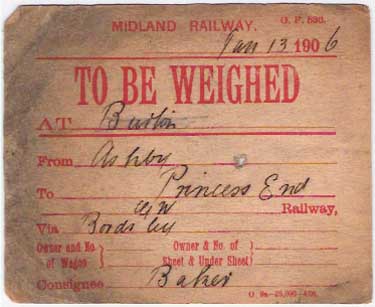 MIDLAND RAILWAY. O. F. 530.
Jan 13 1906
TO BE WEIGHED
AT Burton
From Ashby
To Princess End
GW Railway,
Via Bordsley
Owner and No. of Wagon } Owner & No. of Sheet & Under Sheet }
Consignee Baker